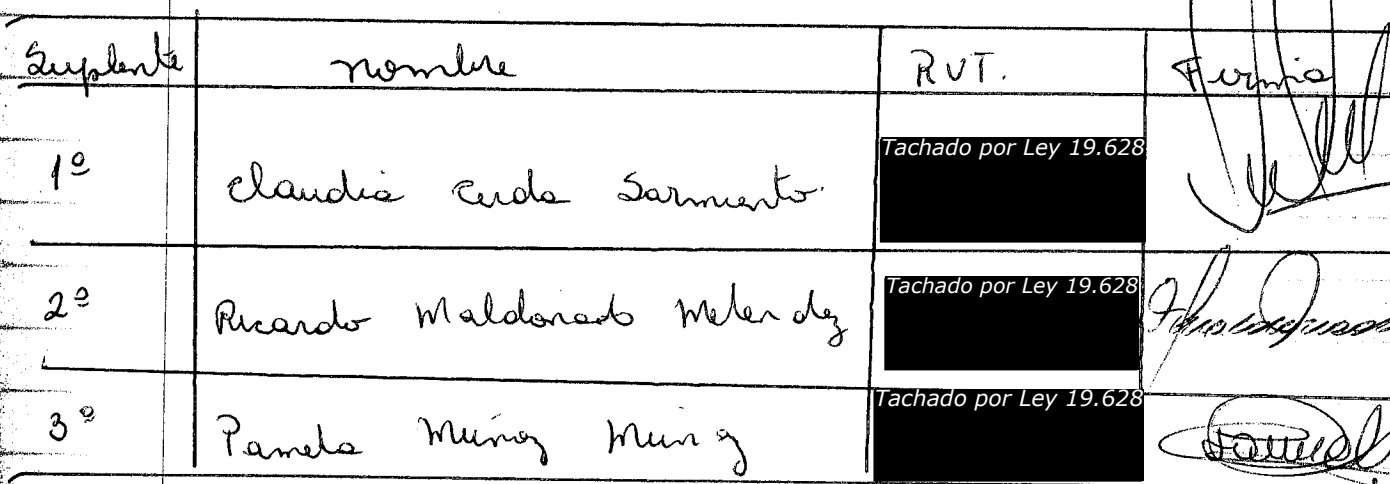 Suplente nombre RUT. Firma
1º Claudia Cerda Sarmiento. Tachado por Ley 19.628
2º Ricardo Maldonado Melendez Tachado por Ley 19.628
3º Pamela Muñoz Muñoz Tachado por Ley 19.628